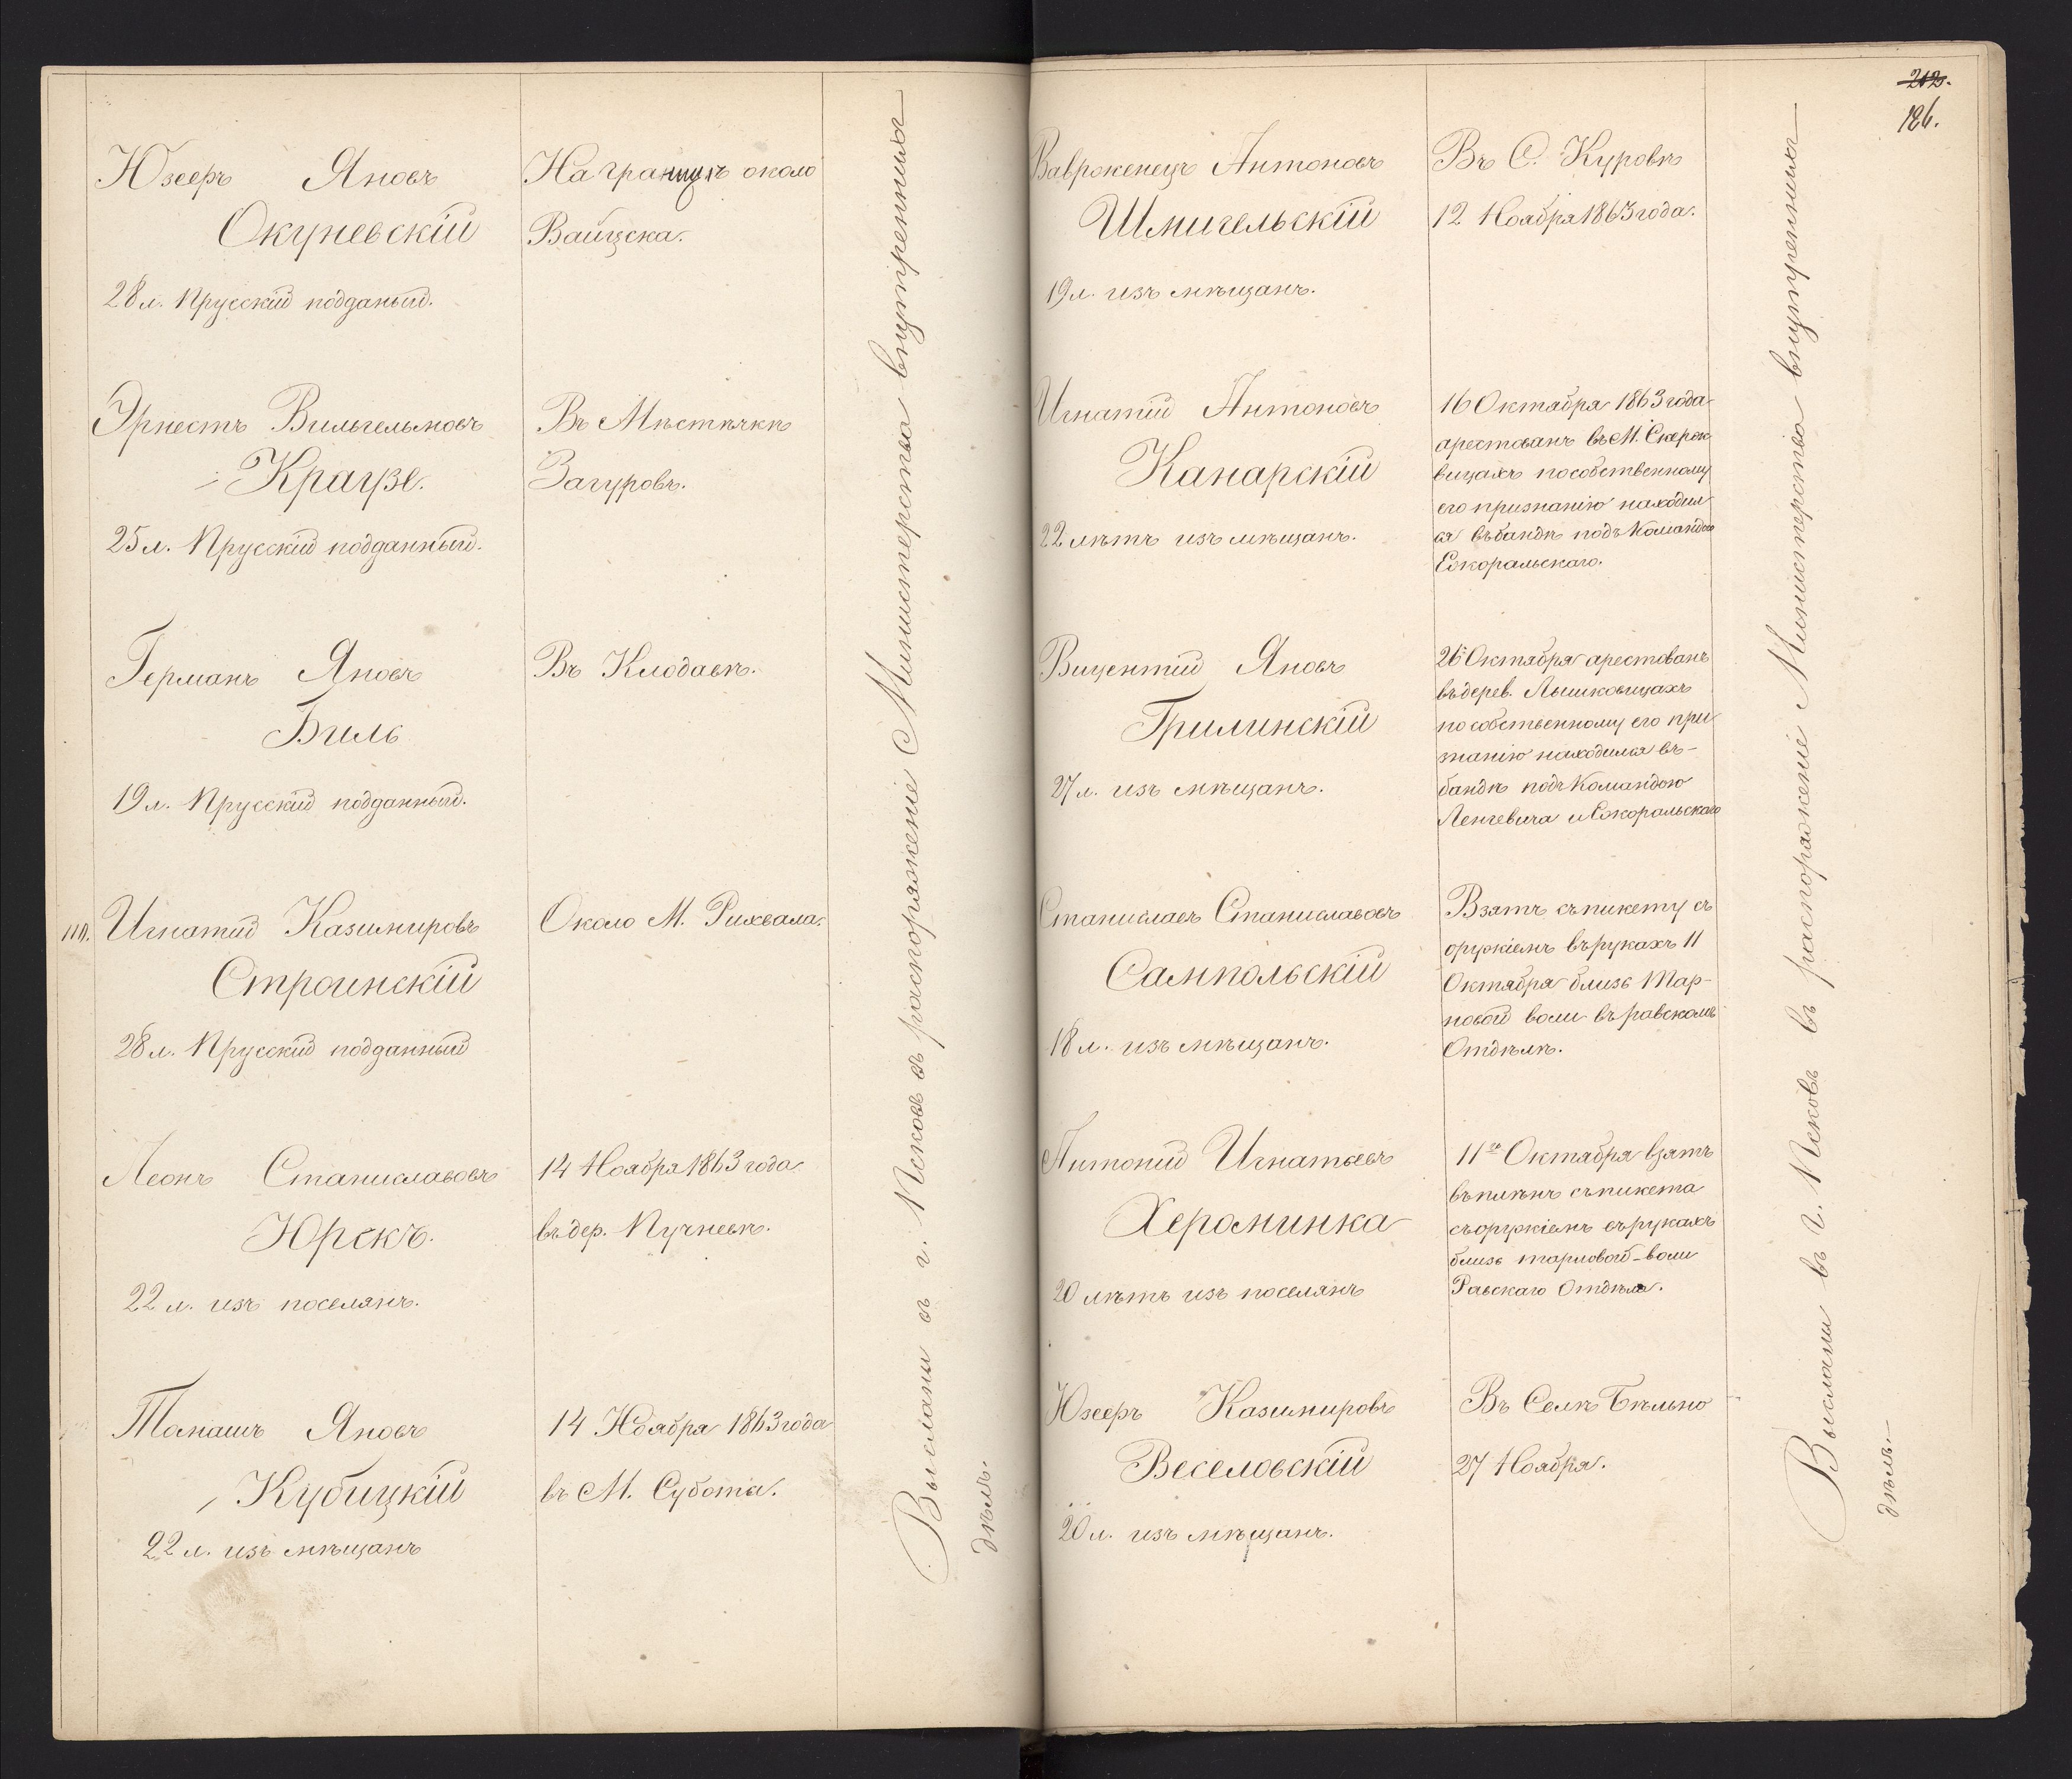 Юзефъ Яновъ
Окуневскій
28 л. Прусскій подданый.
На границѣ около
Вайцска.
Эрнестъ Вильгельмовъ
Краузе.
25 л. Прусскій подданный.
Въ Мѣстѣчкѣ
Загуровъ.
Германъ Яновъ
Биль
19 л. Прусскій подданный.
Въ Клодавѣ.
Игнатій Казимировъ
Строинскій
28 л. Прусскій подданный
Около М. Рихвала.
Леонъ Станиславовъ
Юрскъ.
22 л. изъ поселянъ.
14 Ноября 1863 года
въ дер. Пучневѣ.
Томашъ Яновъ
Кубицкій
22 л. изъ мѣщанъ
14 Ноября 1863 года
въ М. Субота.
Высланы въ г. Псковъ въ распоряженіе Министерства внутреннихъ
дѣлъ.
212.
186.
Вавроженецъ Антоновъ
Шмигельскій
19 л. изъ мѣщанъ.
Въ С. Куровѣ
12 Ноября 1863 года.
Игнатій Антоновъ
Канарскій
22 лѣтъ изъ мѣщанъ.
16 Октября 1863 года
арестованъ въ М. Скерне
вицахъ по собственному
его признанію находил
ся въ бандѣ подъ Командою
Скоральскаго.
Вицентій Яновъ
Грилинскій
27 л. изъ мѣщанъ.
26 Октября арестованъ
въ дерев. Лышковицахъ
по собственному его при
знанію находился въ
бандѣ подъ Командою
Ленгевича и Скоральскаго
Станиславъ Станиславовъ
Сампольскій
18 л. изъ мѣщанъ.
Взятъ съ пикету съ
оружіемъ въ рукахъ 11
Октября близь Тар-
новой воли въ равскомъ
Отдѣлѣ.
Антоній Игнатьевъ
Хероминка
20 лѣтъ изъ поселянъ
11го Октября взятъ
въ плѣнъ съ пикета
съ оружіемъ въ рукахъ
близь тарновой-воли
Равскаго Отдѣла.
Юзефъ Казимировъ
Веселовскій
20 л. изъ мѣщанъ.
Въ Селѣ Бѣльно
27 Ноября.
Высланы въ г. Псковъ въ распоряженіе Министерства внутреннихъ
дѣлъ.